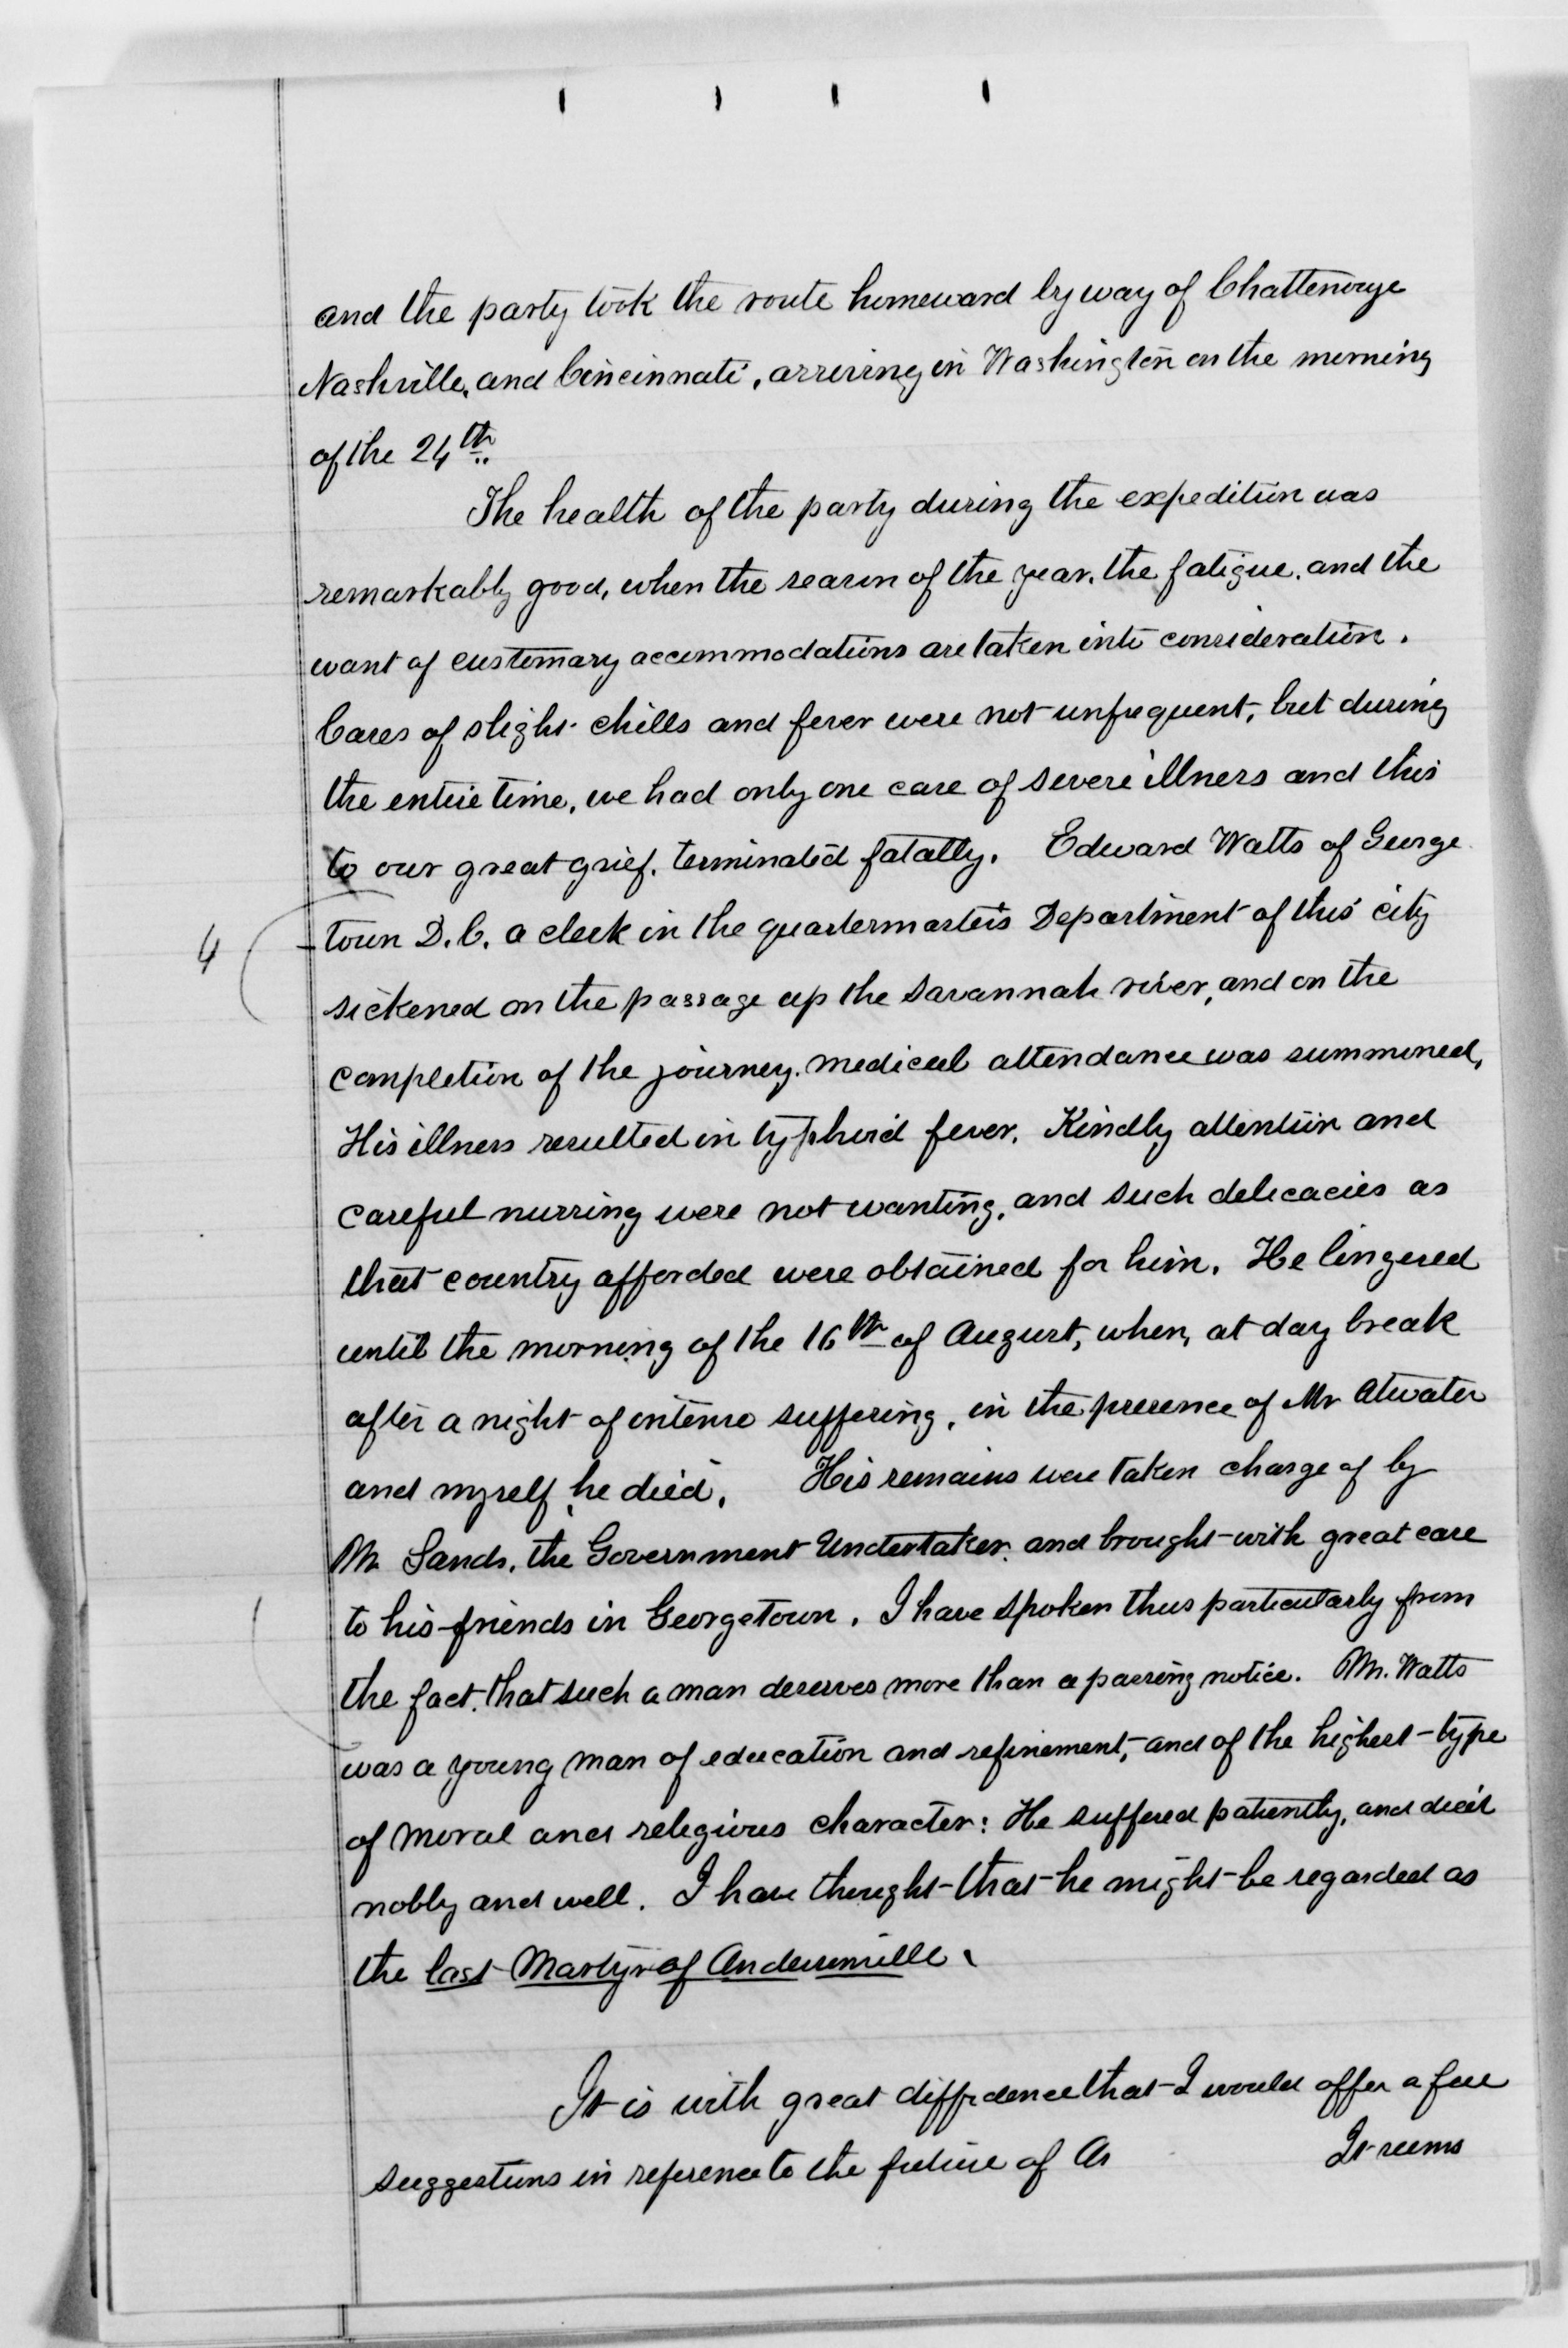 and the party took the route homeward by way of Chattenouge
Nashville, and Cincinnati, arriving in Washington on the morning
of the 24th.
The health of the party during the expedition was
remarkably good, when the season of the year, the fatigue, and the
want of customary accommodations are taken into consideration.
Cases of slight chills and fever were not unfrequent, but during
the entire time, we had only one case of severe illness and this
to our great grief, terminated fatally. Edward Watts of George
4 town D.C. a clerk in the quartermasters Department of this city
sickened on the passage up the Savannah river, and on the
completion of the journey, medical attendance was summoned,
His illness resulted in typhoid fever. Kindly attention and
careful nursing were not wanting, and such delicacies as
that country afforded were obtained for him. He lingered
until the morning of the 16th of August, when, at day break
after a night of intense suffering, in the presence of Mr Atwater
and myself, he died. His remains were taken charge of by
Mr Sands, the Government Undertaker, and brought with great care
to his friends in Georgetown. I have spoken thus particularly from
the fact, that such a man deserves more than a passing notice. Mr. Watts
was a young man of education and refinement, and of the highest type
of moral and religious character: He suffered patiently, and died
nobly and well. I have thought that he might be regarded as
the last Martyr of Andersonville.
It is with great diffidence that I would offer a few
suggestions in reference to the future of An It seems